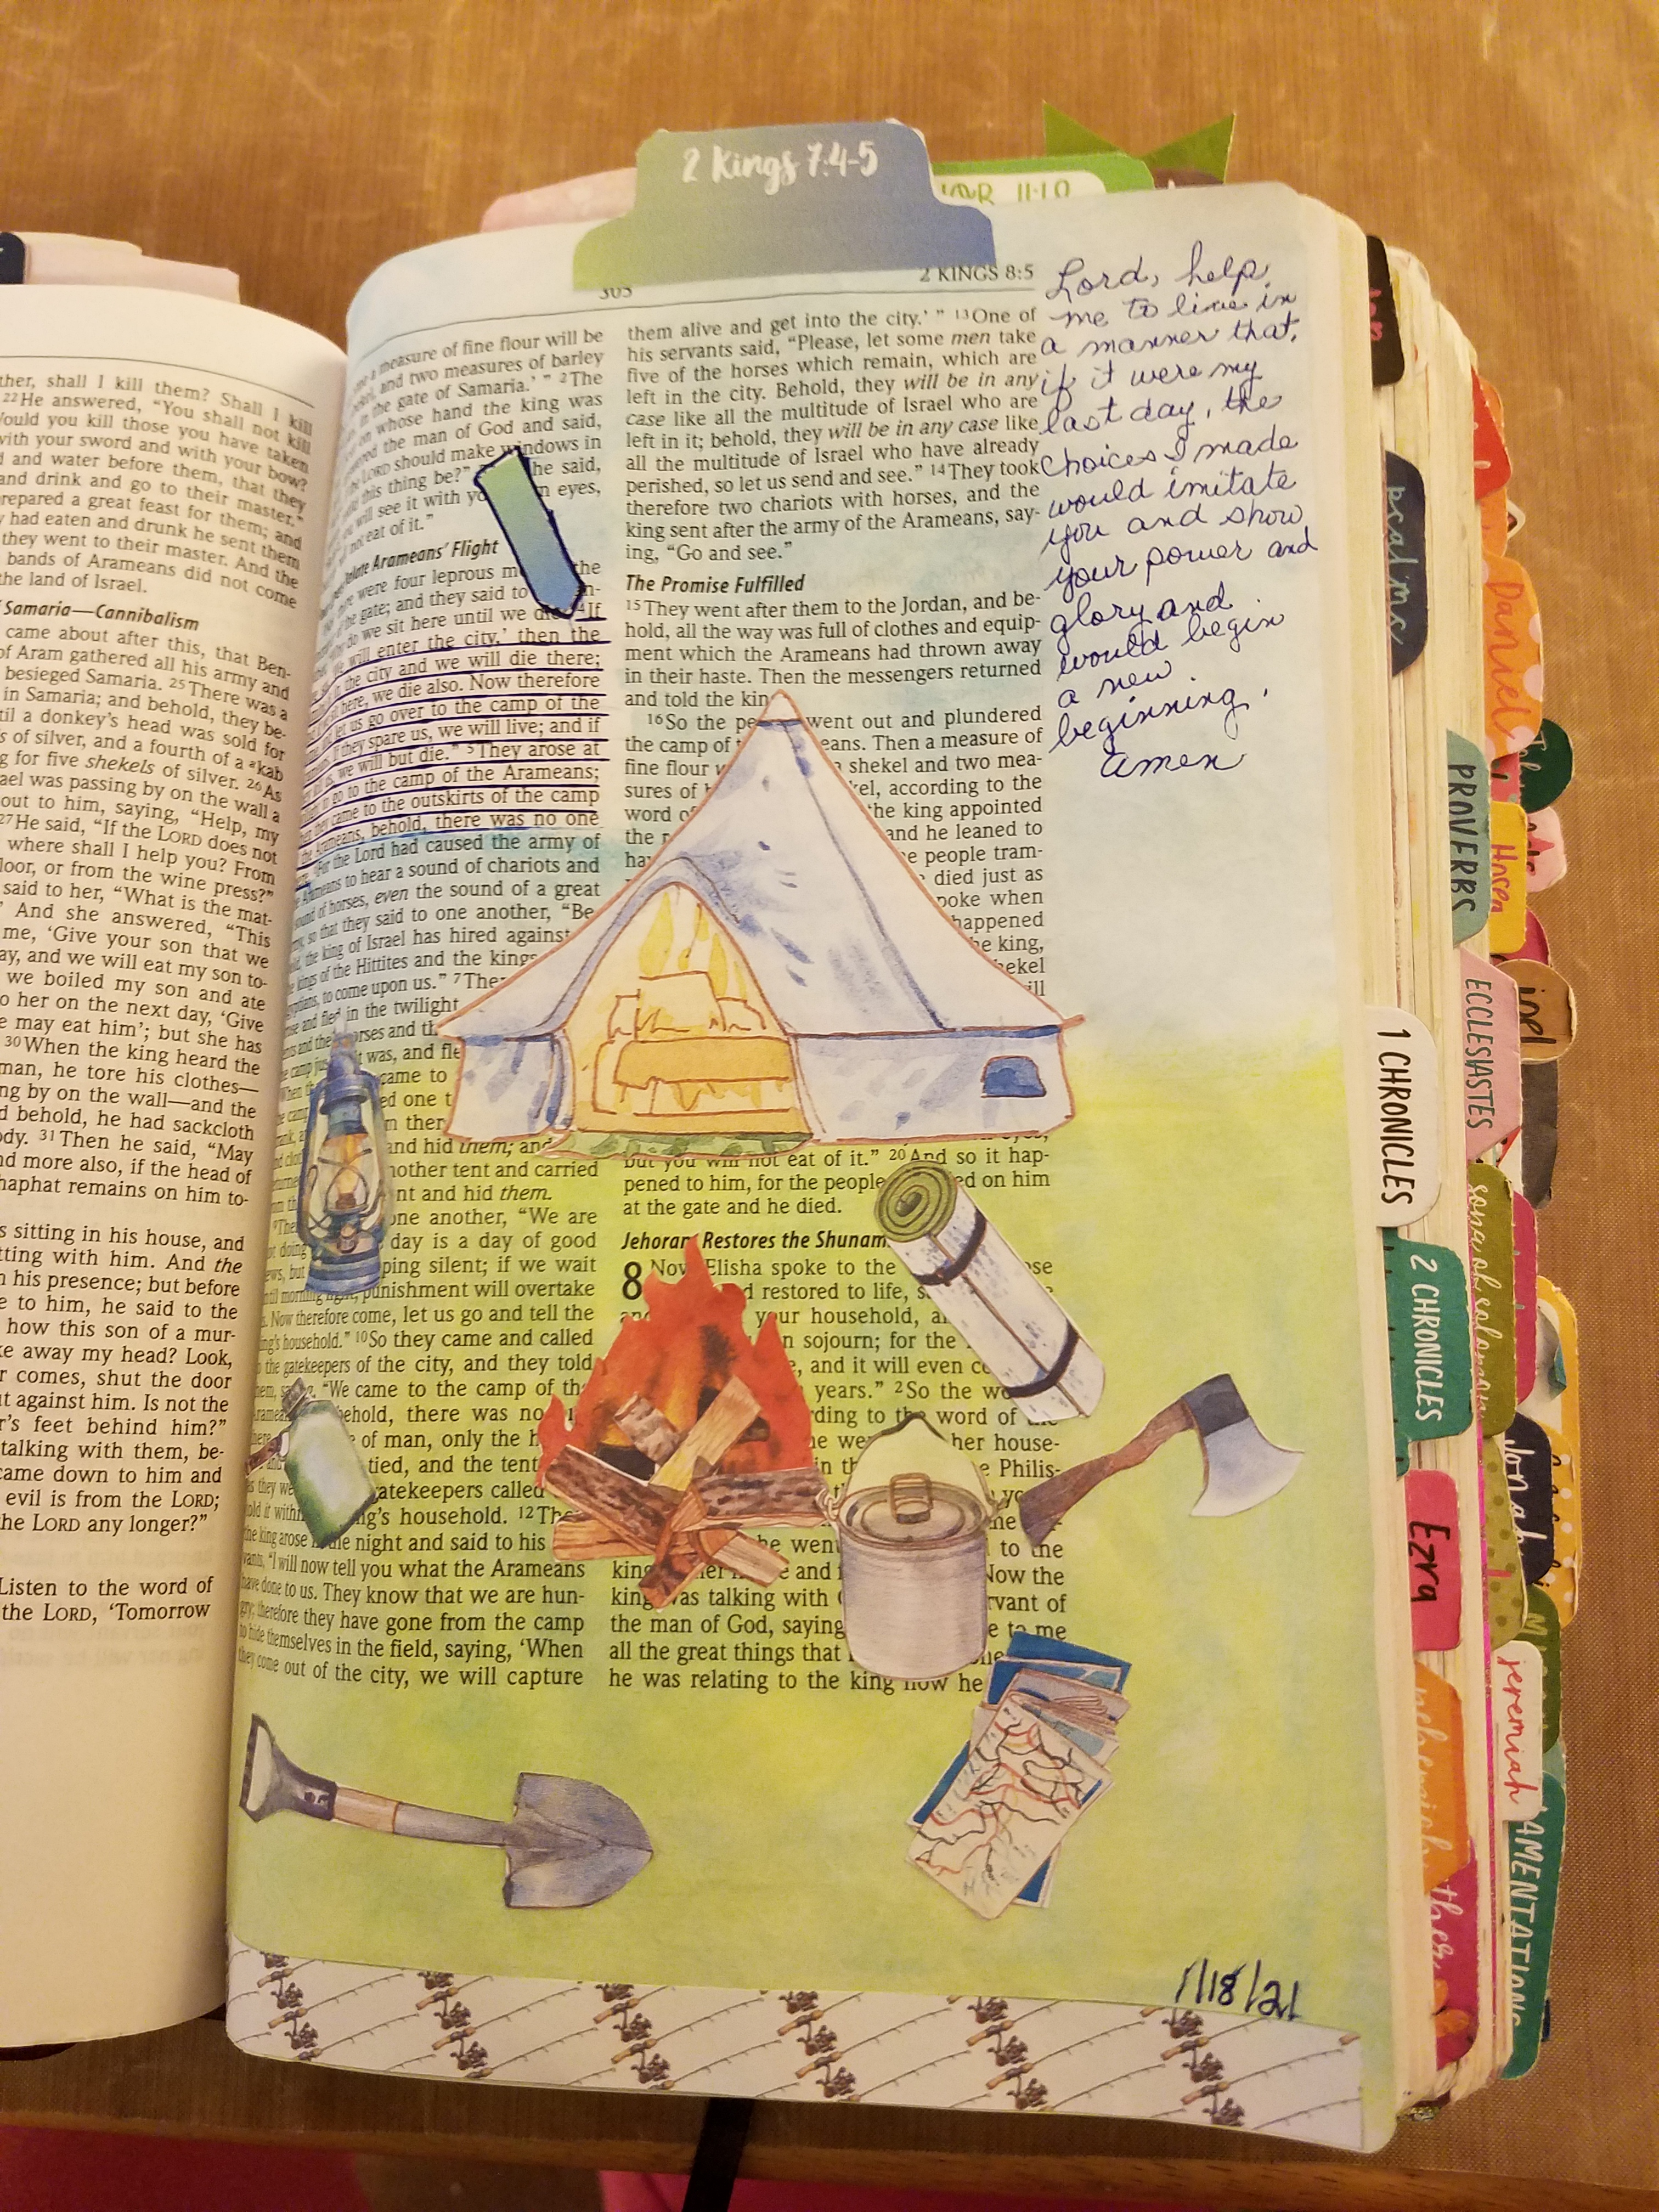 2 Kings 7:4-5
305
2 KINGS 8:5
ther, shall I kill them? Shall I kill
22He answered, "You shall not kill
Would you kill those you have taken
with your sword and with your bow?
and water before them, that they
and drink and go to their master."
prepared a great feast for them; and
y had eaten and drunk he sent them
they went to their master. And the
bands of Arameans did not come
the land of Israel.
Samaria—Cannibalism
came about after this, that Ben-
of Aram gathered all his army and
besieged Samaria. 25There was a
in Samaria; and behold, they be-
til a donkey's head was sold for
s of silver, and a fourth of a kab
g for five shekels of silver. 26As
ael was passing by on the wall a
out to him, saying, "Help, my
27He said, "If the LORD does not
where shall I help you? From
floor, or from the wine press?"
said to her, "What is the mat-
And she answered, "This
me, 'Give your son that we
ay, and we will eat my son to-
we boiled my son and ate
o her on the next day, 'Give
e may eat him'; but she has
30When the king heard the
man, he tore his clothes—
ng by on the wall—and the
d behold, he had sackcloth
ody. 31Then he said, "May
nd more also, if the head of
haphat remains on him to-
s sitting in his house, and
tting with him. And the
n his presence; but before
e to him, he said to the
how this son of a mur-
ke away my head? Look,
r comes, shut the door
ut against him. Is not the
r's feet behind him?"
talking with them, be-
came down to him and
evil is from the LORD;
the LORD any longer?"
Listen to the word of
the LORD, 'Tomorrow
a measure of fine flour will be
and two measures of barley
in the gate of Samaria.' " 2The
on whose hand the king was
the man of God and said,
LORD should make windows in
this thing be?" he said,
will see it with eyes,
not eat of it."
Arameans' Flight
were four leprous the
gate; and they said to
do we sit here until we die? 4If
will enter the city,' then the
the city and we will die there;
here, we die also. Now therefore
let us go over to the camp of the
if they spare us, we will live; and if
we will but die." 5They arose at
to go to the camp of the Arameans;
they came to the outskirts of the camp
the Arameans, behold, there was no one
For the Lord had caused the army of
Arameans to hear a sound of chariots and
sound of horses, even the sound of a great
army, so that they said to one another, "Be-
the king of Israel has hired against
kings of the Hittites and the kings
to come upon us." 7Ther
and fled in the twilight
horses and th
it was, and fle
came to
ed one t
n ther
and hid them; and
nother tent and carried
nt and hid them.
one another, "We are
day is a day of good
ping silent; if we wait
until morning light, punishment will overtake
Now therefore come, let us go and tell the
king's household." 10So they came and called
to the gatekeepers of the city, and they told
"We came to the camp of the
behold, there was no
of man, only the h
tied, and the tent
gatekeepers called
king's household. 12The
the king arose in the night and said to his
"I will now tell you what the Arameans
have done to us. They know that we are hun-
gry; therefore they have gone from the camp
to hide themselves in the field, saying, 'When
they come out of the city, we will capture
them alive and get into the city.' " 13One of
his servants said, "Please, let some men take
five of the horses which remain, which are
left in the city. Behold, they will be in any
case like all the multitude of Israel who are
left in it; behold, they will be in any case like
all the multitude of Israel who have already
perished, so let us send and see." 14They took
therefore two chariots with horses, and the
king sent after the army of the Arameans, say-
ing, "Go and see."
The Promise Fulfilled
15They went after them to the Jordan, and be-
hold, all the way was full of clothes and equip-
ment which the Arameans had thrown away
in their haste. Then the messengers returned
and told the kin
16So the pe went out and plundered
the camp of eans. Then a measure of
fine flour shekel and two mea-
sures of kel, according to the
word of the king appointed
the r and he leaned to
hav e people tram-
died just as
poke when
happened
he king,
hekel
ill
but you will not eat of it." 20And so it hap-
pened to him, for the people ed on him
at the gate and he died.
Jehoram Restores the Shunam
8 Now Elisha spoke to the ose
d restored to life, s
your household, a
n sojourn; for the
e, and it will even co
years." 2So the wo
rding to the word of the
he we her house-
in th e Philis-
he went to the
king her and Now the
king was talking with rvant of
the man of God, saying e to me
all the great things that
he was relating to the king how he
Lord, help
me to live in
a manner that,
if it were my
last day, the
choices I made
would imitate
you and show
your power and
glory and
would begin
a new
beginning.
amen
1/18/21
psalms
PROVERBS
ECCLESIASTES
song of solomon
1 CHRONICLES
2 CHRONICLES
Ezra
nehemiah
jeremiah
LAMENTATIONS
Daniel
Hosea
joel
Jonah